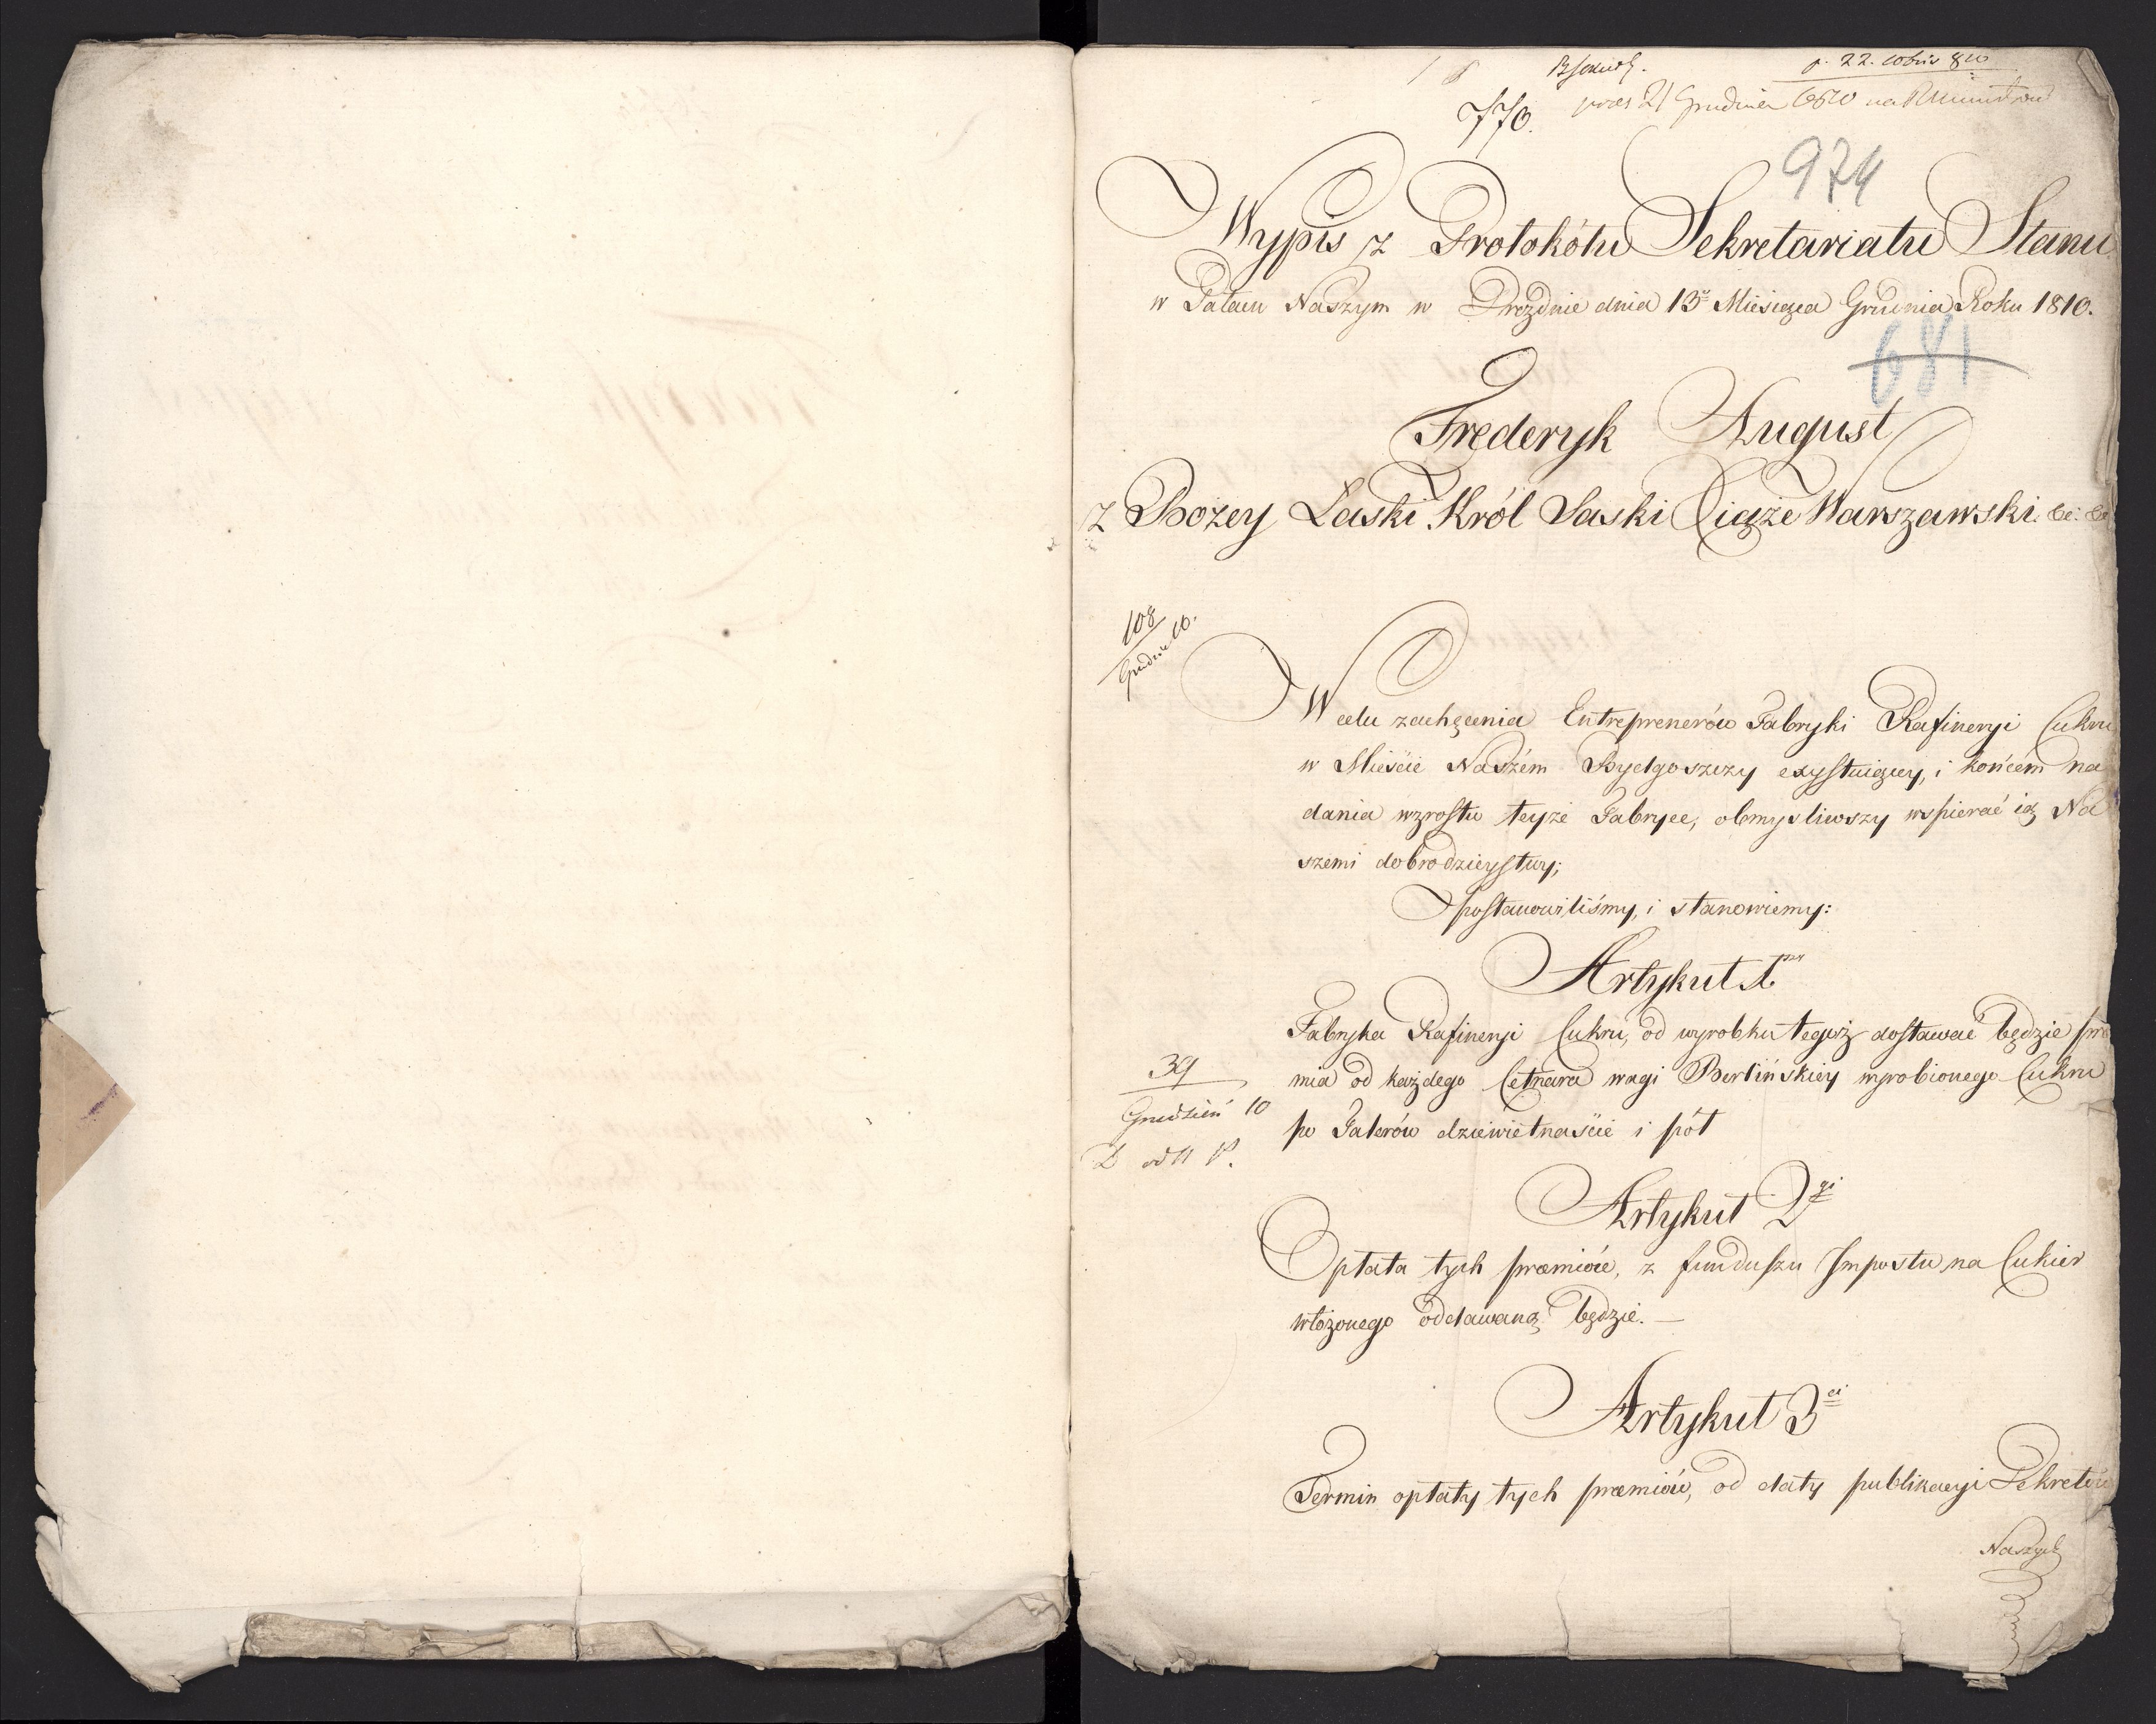 p. 22. Xbris 810
770. prez 21 Grudnia 1810 na
974
Wypis z Protokółu Sekretariatu Stanu
w Pałacu Naszym w Drezdnie dnia 13º Miesiąca Grudnia Roku 1810.
681
Frederyk August
z Bożey Łaski Król Saski Xiąże Warszawski. &c: &c
108
Grudnia 10.
W celu zachęcenia Entreprenerów Fabryki Rafineryi Cukru
w Mieście Naszém Bydgoszczy exystuiącey, i końcem na
dania wzrostu teyże Fabryce, obmysliwszy wspierać ią Na
szemi dobrodzieystwy;
postanowiliśmy, i stanowiemy:
Artykuł 1szy
Fabryka Rafineryi Cukru, od wyrobku tegoż dostawać będzie præ
mia od każdego Cetnara wagi Berlińskiey wyrobionego Cukru
po Talerów dziewiętnaście i pół
39
Grudzień 10
Artykuł 2gi
Opłata tych præmiów, z funduszu Impostu na Cukier
włożonego oddawaną będzie. —
Artykuł 3ci
Termin opłaty tych præmiów, od daty publikacyi Dekretów
Naszych